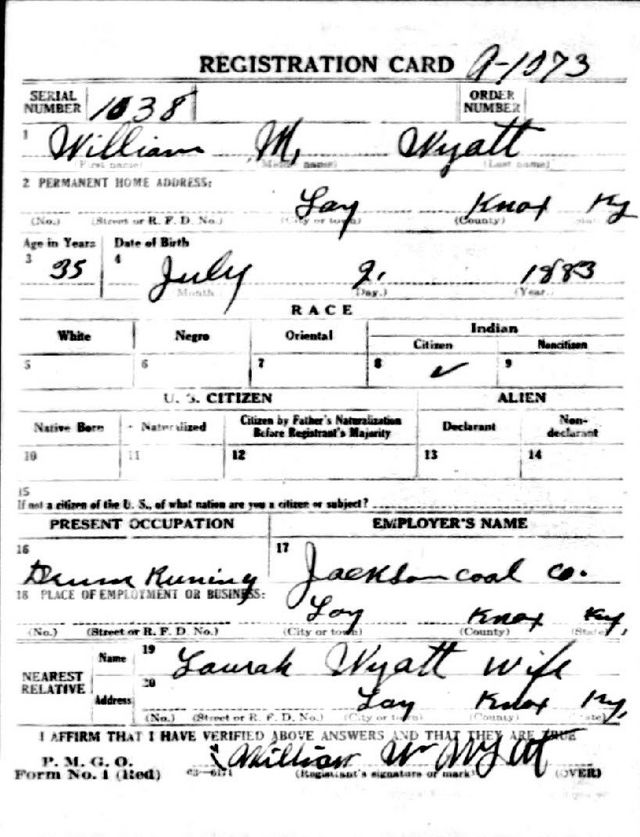 REGISTRATION CARD A-1073
SERIAL NUMBER 1038 ORDER NUMBER
1 William M. Wyatt
(First name) (Middle name) (Last name)
2 PERMANENT HOME ADDRESS:
Lay Knox Ky
(No.) (Street or R. F. D. No.) (City or town) (County) (State)
Age in Years Date of Birth
3 35 4 July 2. 1883
Month Day.) (Year.
RACE
White Negro Oriental Indian
Citizen Noncitizen
5 6 7 8 ✓ 9
U. S. CITIZEN ALIEN
Native Born Naturalized Citizen by Father's Naturalization Before Registrant's Majority Declarant Non-declarant
10 11 12 13 14
15
If not a citizen of the U. S., of what nation are you a citizen or subject?
PRESENT OCCUPATION EMPLOYER'S NAME
16 17
Drum Runing Jackson coal co.
18 PLACE OF EMPLOYMENT OR BUSINESS:
Loy Knox Ky.
(No.) (Street or R. F. D. No.) (City or town) (County) (State)
NEAREST RELATIVE Name 19 Laurah Wyatt wife
Address 20 Lay Knox Ky,
(No.) (Street or R. F. D. No.) (City or town) (County) (State)
I AFFIRM THAT I HAVE VERIFIED ABOVE ANSWERS AND THAT THEY ARE TRUE
P. M. G. O.
Form No. 1 (Red) 03-6171 William Wyatt
(Registrant's signature or mark) (OVER)